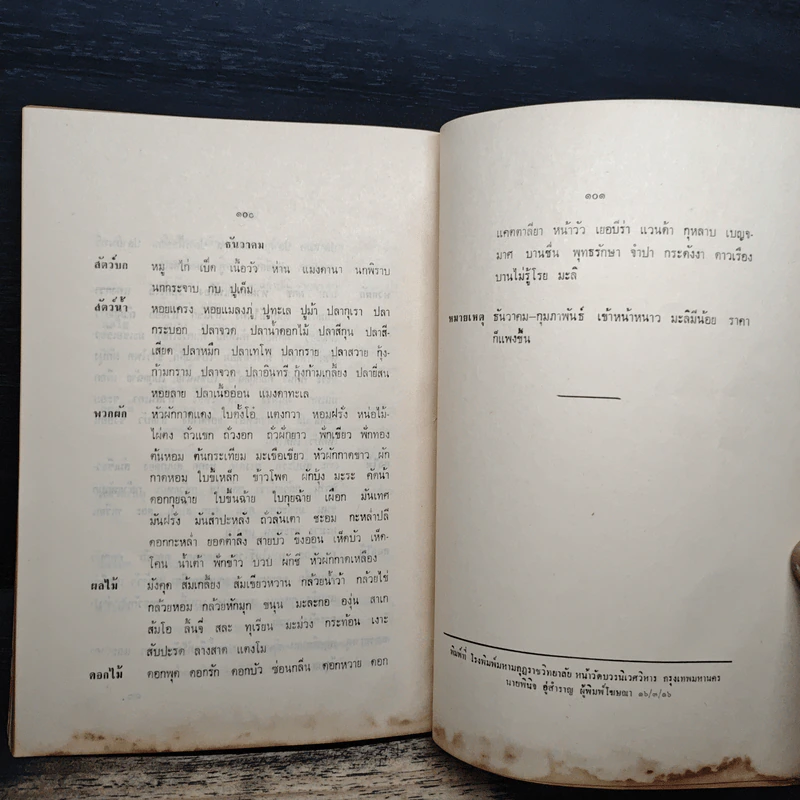 ๑๐๐
ธันวาคม
สัตว์บก หมู ไก่ เป็ด เนื้อวัว ห่าน แมงดานา นกพิราบ
นกกระจาบ กบ ปูเค็ม
สัตว์น้ำ หอยแครง หอยแมลงภู่ ปูทะเล ปูม้า ปลากุเรา ปลา
กระบอก ปลาจวด ปลาน้ำดอกไม้ ปลาสีกุน ปลาสี-
เสียด ปลาหมึก ปลาเทโพ ปลากราย ปลาสวาย กุ้ง-
ก้ามกราม ปลาจวด ปลาอินทรี กุ้งก้ามเกลี้ยง ปลายี่สน
หอยลาย ปลาเนื้ออ่อน แมงดาทะเล
พวกผัก หัวผักกาดแดง ใบตั้งโอ๋ แตงกวา หอมฝรั่ง หน่อไม้-
ไผ่ตง ถั่วแขก ถั่วงอก ถั่วฝักยาว ฟักเขียว ฟักทอง
ต้นหอม ต้นกระเทียม มะเขือเขียว หัวผักกาดขาว ผัก
กาดหอม ใบขี้เหล็ก ข้าวโพด ผักบุ้ง มะระ คัดน้า
ดอกกุยฉ้าย ใบขึ้นฉ้าย ใบกุยฉ้าย เผือก มันเทศ
มันฝรั่ง มันสำปะหลัง ถั่วลันเตา ชะอม กะหล่ำปลี
ดอกกะหล่ำ ยอดตำลึง สายบัว ขิงอ่อน เห็ดบัว เห็ด-
โคน น้ำเต้า ฟักข้าว บวบ ผักชี หัวผักกาดเหลือง
ผลไม้ มังคุด ส้มเกลี้ยง ส้มเขียวหวาน กล้วยน้ำว้า กล้วยไข่
กล้วยหอม กล้วยหักมุก ขนุน มะละกอ องุ่น สาเก
ส้มโอ ลิ้นจี่ สละ ทุเรียน มะม่วง กระท้อน เงาะ
สับปะรด ลางสาด แตงโม
ดอกไม้ ดอกพุด ดอกรัก ดอกบัว ซ่อนกลิ่น ดอกหวาย ดอก
๑๐๑
แคตตาลียา หน้าวัว เยอบีร่า แวนด้า กุหลาบ เบญจ-
มาศ บานชื่น พุทธรักษา จำปา กระดังงา ดาวเรือง
บานไม่รู้โรย มะลิ
หมายเหตุ ธันวาคม–กุมภาพันธ์ เข้าหน้าหนาว มะลิมีน้อย ราคา
ก็แพงขึ้น
พิมพ์ที่ โรงพิมพ์มหามกุฏราชวิทยาลัย หน้าวัดบวรนิเวศวิหาร กรุงเทพมหานคร
นายพินิจ อู่สำราญ ผู้พิมพ์โฆษณา ๑๖/๓/๑๖